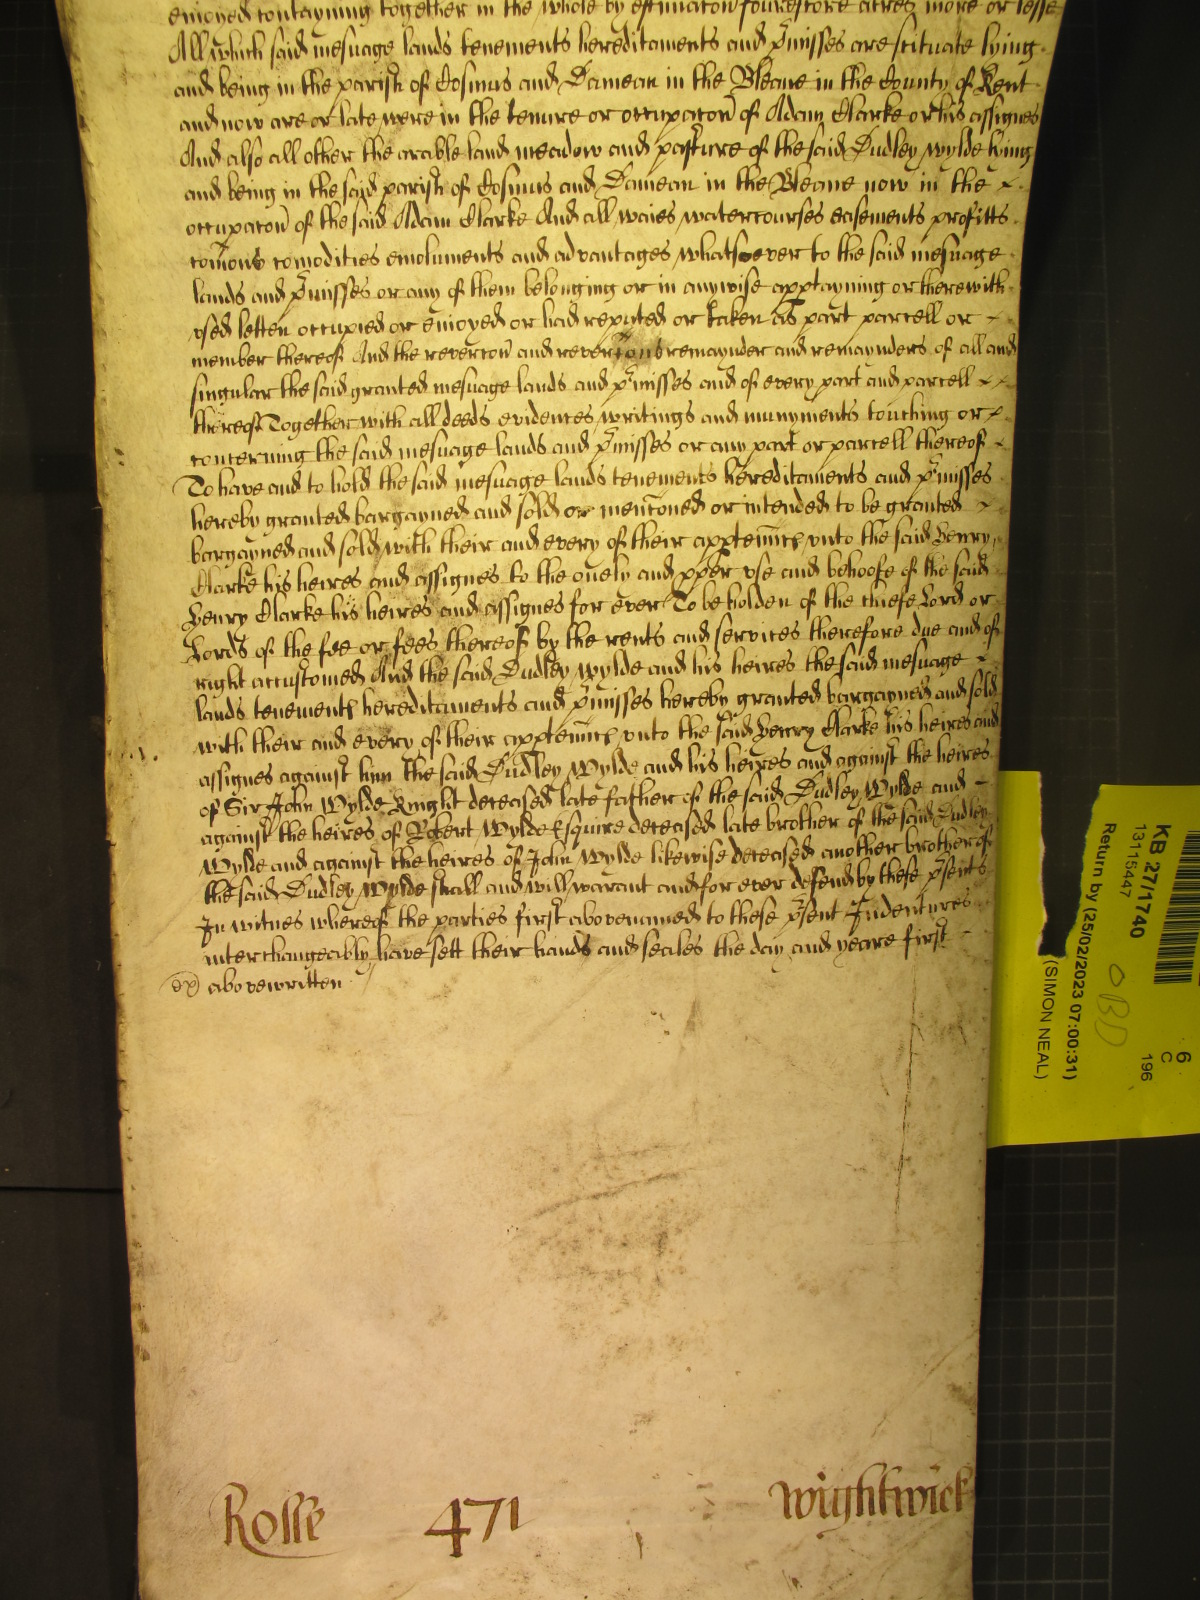 enioyed contayning together in the whole by estimacoñ fourescore acres more or lesse
All which said mesuage lands tenements hereditaments and p̃misses are scituate lying
and being in the parish of Cosmus and Damean in the Bleane in the County of Kent
and now are or late were in the tenure or occupacoñ of Adam Clarke or his assignes
And also all other the arable land meadow and pasture of the said Dudley Wylde lying
and being in the said parish of Cosmus and Damean in the Bleane now in the
occupacoñ of the said Adam Clarke And all waies watercourses easements profitts
com̃ons comodities emoluments and advantages whatsoever to the said mesuage
lands and p̃misses or any of them belonging or in anywise apptayning or therewith
vsed letten occupied or enioyed or had reputed or taken as part parcell or
member thereof And the revercoñ and revercons remaynder and remaynders of all and
singular the said granted mesuage lands and p̃misses and of every part and parcell
thereof Together with all deeds evidences writings and munyments touching or
concerning the said mesuage lands and p̃misses or any part or parcell thereof
To have and to hold the said mesuage lands tenements hereditaments and p̃misses
hereby granted bargayned and sold or menc̃oned or intended to be granted
bargayned and sold with their and every of their apptennc̃ vnto the said Henry
Clarke his heires and assignes to the onely and pper vse and behoofe of the said
Henry Clarke his heires and assignes for ever To be holden of the chiefe Lord or
Lords of the fee or fees thereof by the rents and services therefore due and of
right accustomed And the said Dudley Wylde and his heires the said mesuage
lands tenements hereditaments and p̃misses hereby granted bargayned and sold
with their and every of their apptennc̃ vnto the said Henry Clarke his heires and
assignes against him the said Dudley Wylde and his heires and against the heires
of Sir John Wylde Knight deceased late father of the said Dudley Wylde and
against the heires of Robert Wylde Esquire deceased late brother of the said Dudley
Wylde and against the heires of John Wylde likewise deceased another brother of
the said Dudley Wylde shall and will warant and for ever defend by these p̃sents
In witnes whereof the parties first abovenamed to these p̃sent Indentures
interchangeably have sett their hands and seales the day and yeare first
abovewritten
Rosse 471 Wightwick
KB 27/1740
13115447
Return by (25/02/2023 07:00:31)
(SIMON NEAL)
6
C
196
OBD